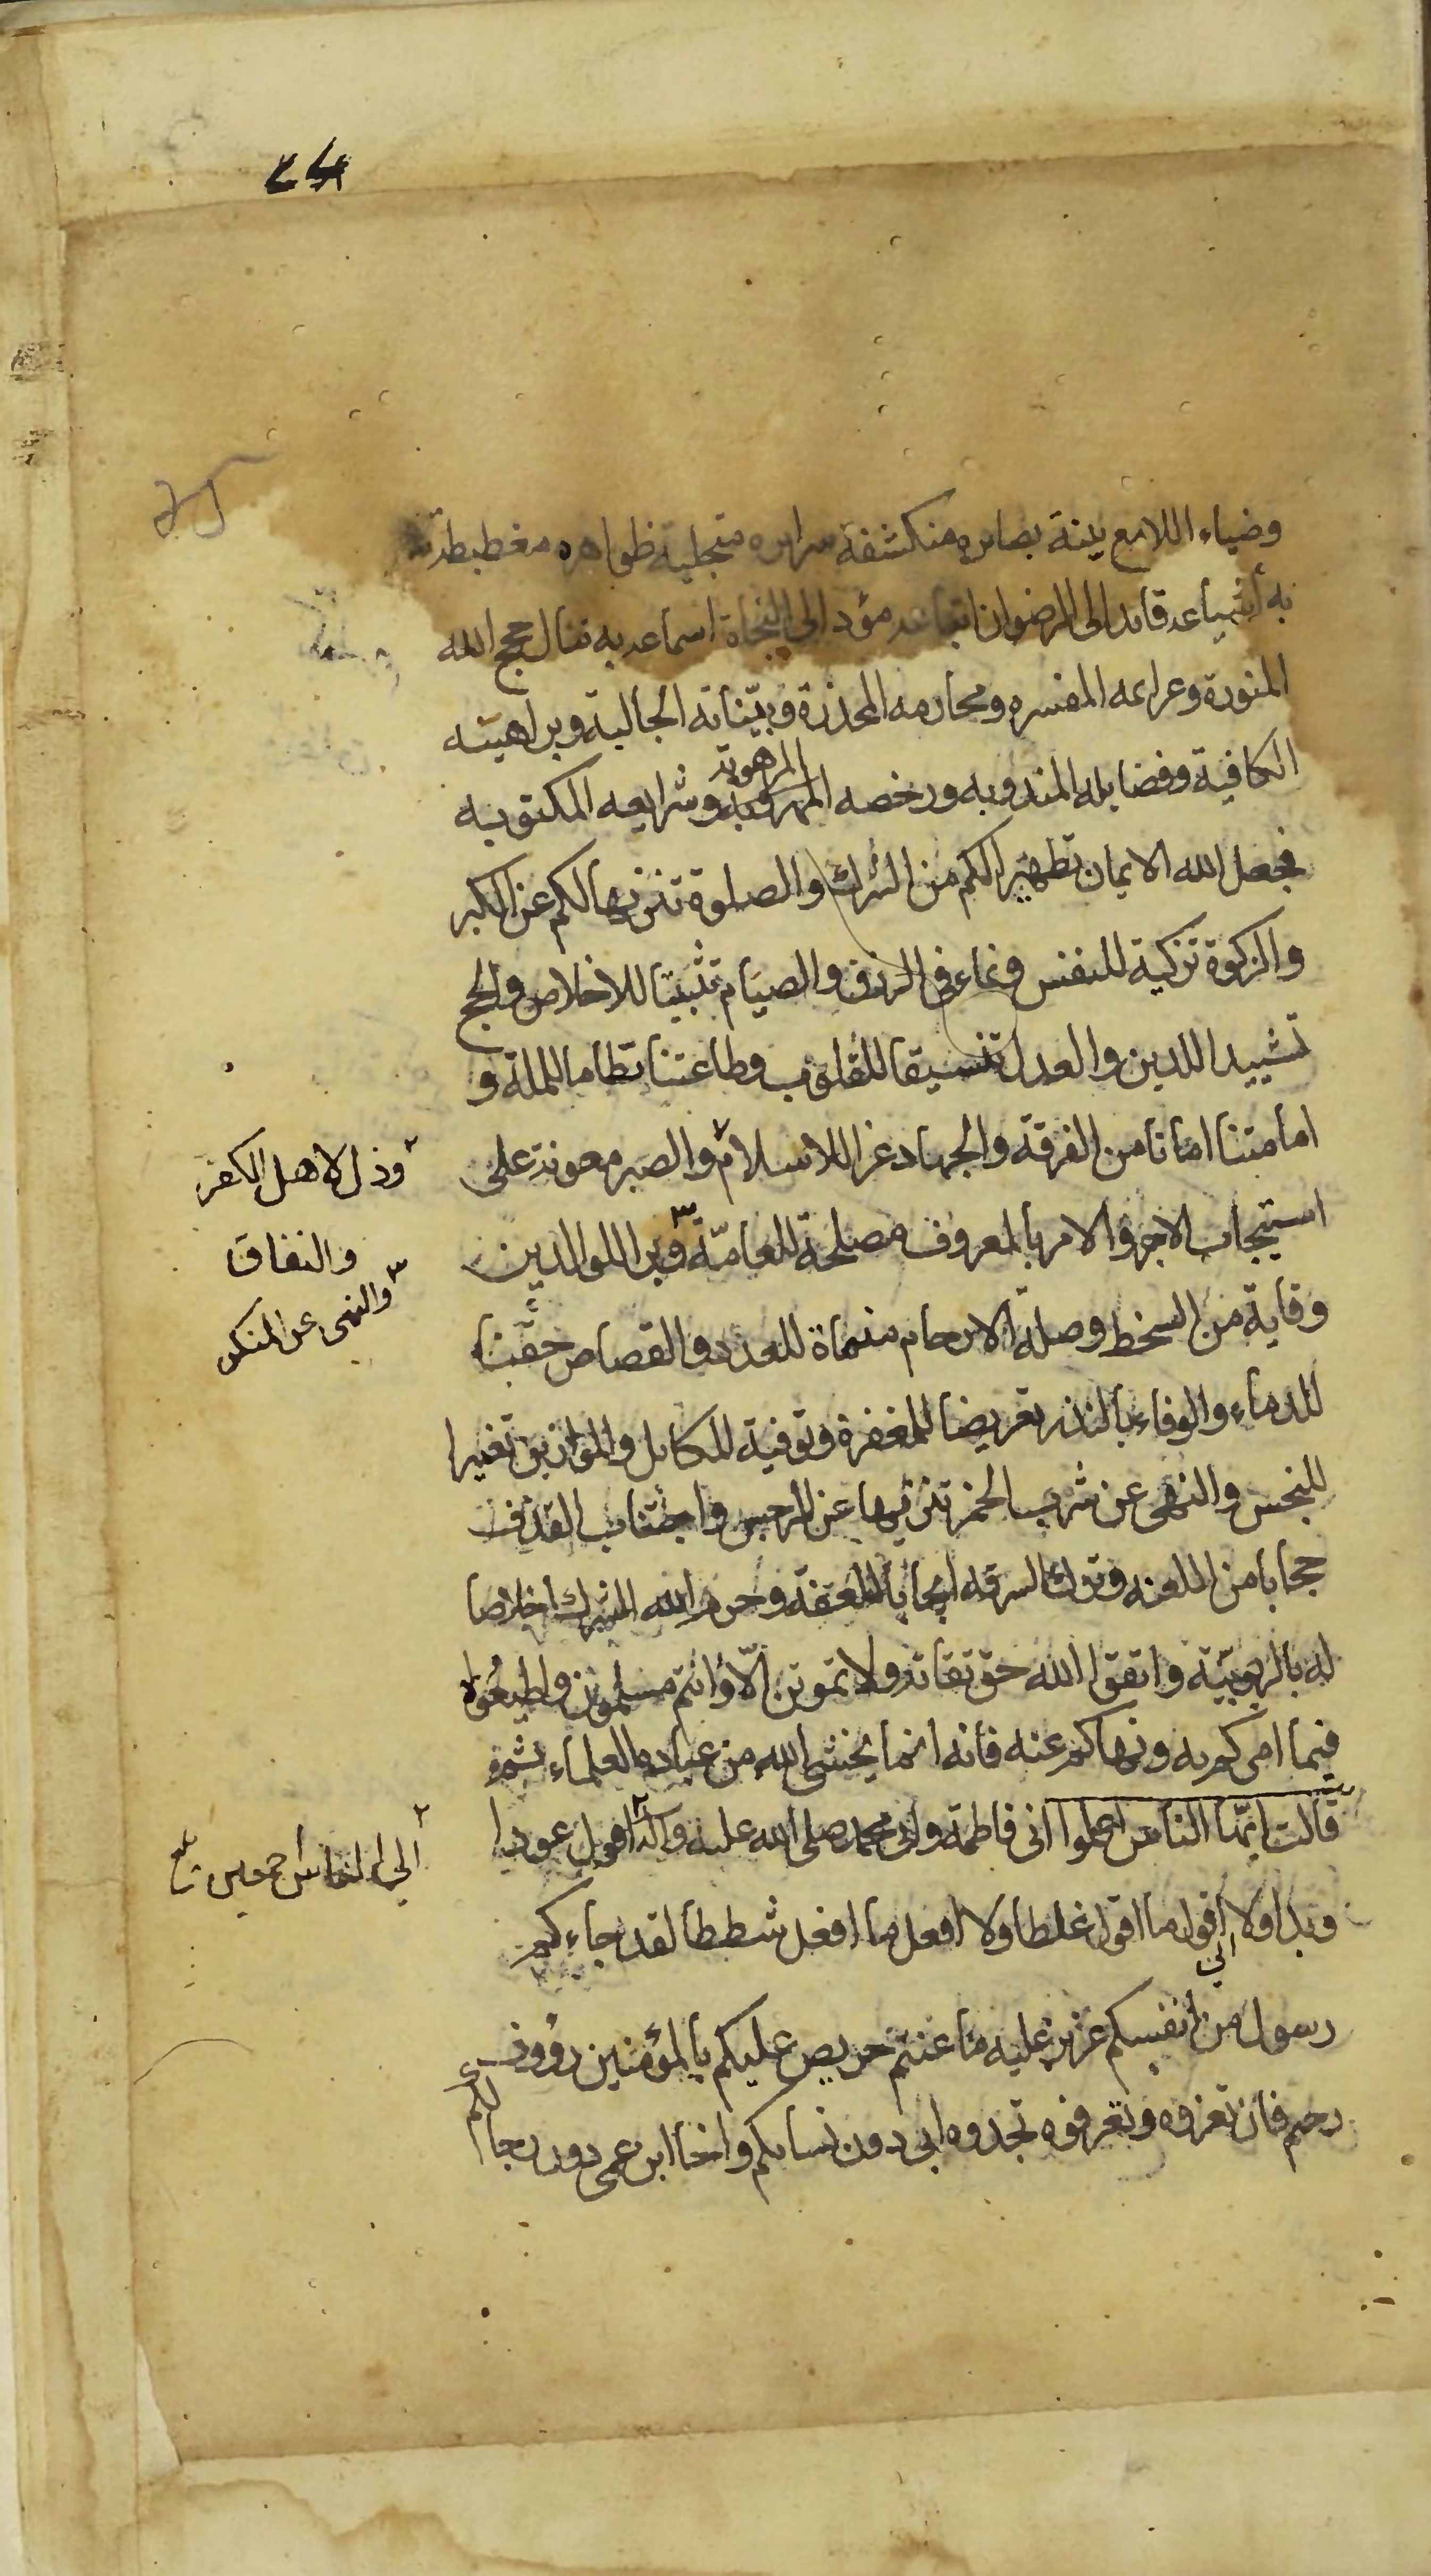 وضياء اللامع بينة بصايره منكشفة سرايره متجلية ظواهره مغطبطة
به أشياعه قايد الى الرضوان اتباعه مؤد الى النجاة اسماعه به تنال حجج الله
المنورة وعزايمه المفسره ومحارمه المحذرة وبيّناته الجالية وبراهينه
الموهوبة
الكافية وفضايله المندوبه ورخصه المرهوبة وشرايعه المكتوبه
فجعل الله الايمان تطهيرا لكم من الشرك والصلوة تنزيها لكم عن الكبر
والزكوة تزكية للنفس ونماء في الرزق والصيام تثبيتا للاخلاص والحج
تشييدا للدين والعدل تنسيقا للقلوب وطاعتنا نظاما للملة و
امامتنا امانا من الفرقة والجهاد عزا للاسلام والصبر معونة على
وذل لاهل الكفر
والنفاق
استيجاب الاجر والامر بالمعروف مصلحة للعامّة وبر الوالدين
والنهى عن المنكر
وقاية من السخط وصلة الارحام منماة للعدد والقصاص حقنا
للدماء والوفاء بالنذر تعريضا للمغفرة وتوفية المكايل والموازين تغييرا
للبخس والنهى عن شرب الخمر تنزيها عن الرجس واجتناب القذف
حجابا من اللعنه وترك السرقه ايجابا للعفة وحرم الله الشرك اخلاصا
له بالربوبيّة واتقوا الله حق تقاته ولا تموتن الّا وانتم مسلمون واطيعوا
فيما امركم به ونهاكم عنه فانه انما يخشى الله من عباده العلماء ثم
قالت ايّها الناس اعلموا انى فاطمة وابى محمد صلى الله عليه وآله اقول عودا
الى الناس اجمعين
وبدا ولا اقول ما اقول غلطا ولا افعل ما افعل شططا لقد جاءكم
رسول من انفسكم عزيز عليه ما عنتم حريص عليكم بالمؤمنين رؤوف
رحيم فان تعزوه وتعرفوه تجدوه ابى دون نسائكم واخا ابن عمى دون رجالكم